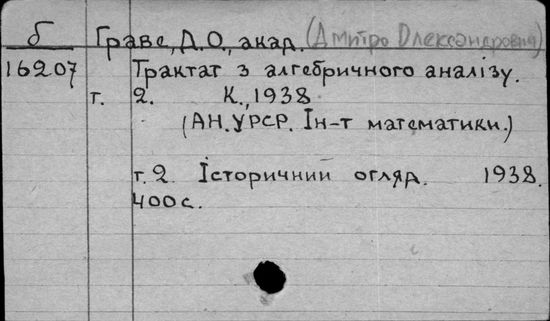 б Граве, Д.О., акад. (Дмитро Олександрович)
16207 Трактат з алгебричного аналізу.
т. 2. К., 1938
(АН.УРСР. Ін-т математики.)
т. 2. Історичний огляд. 1938.
400 с.